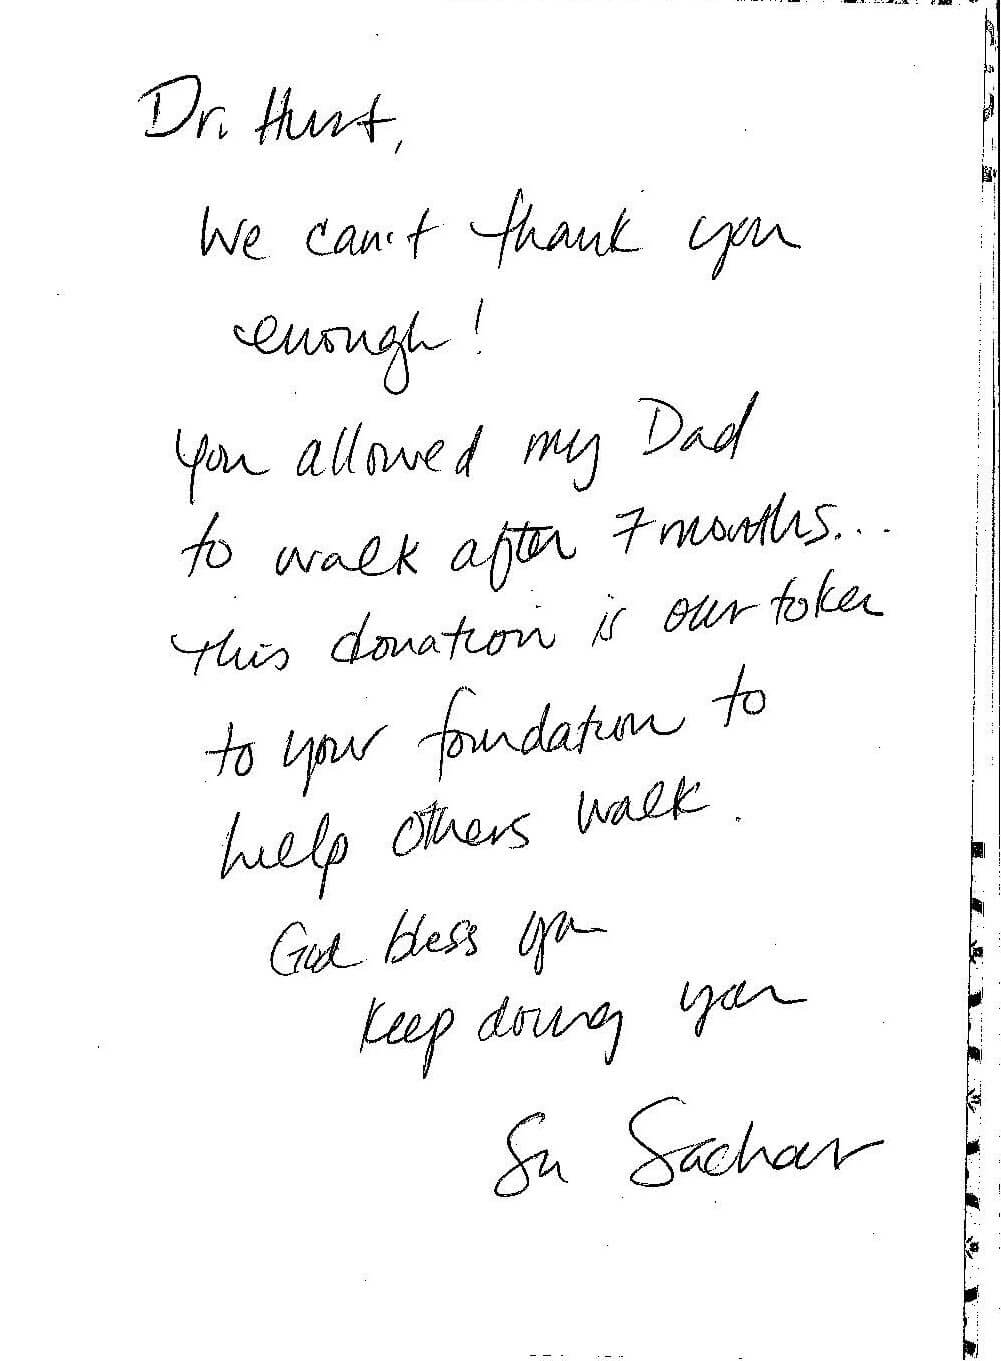 Dr. Hurst,
We can't thank you
enough!
You allowed my Dad
to walk after 7 months...
This donation is our token
to your foundation to
help others walk.
God bless you
Keep doing you
Su Sachar